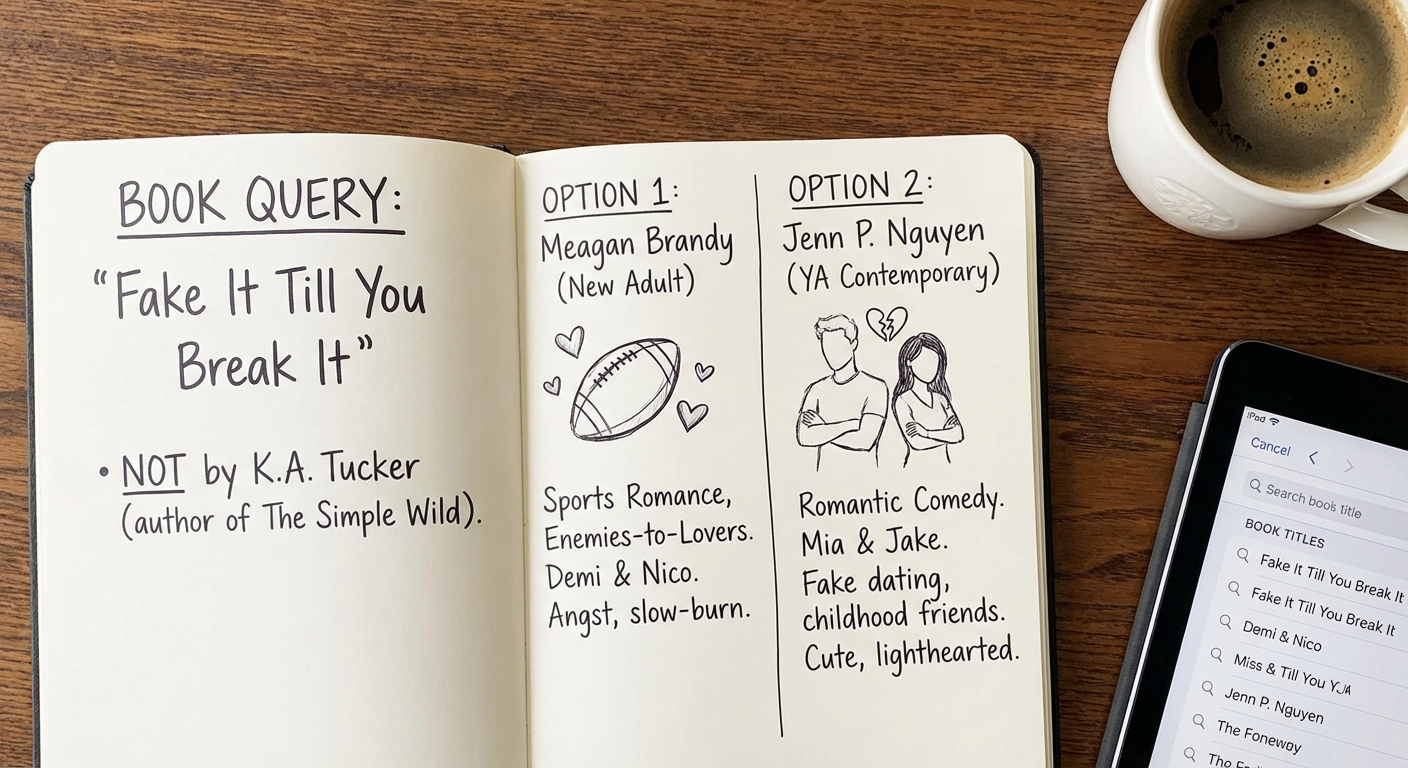 BOOK QUERY:
“Fake It Till You
Break It”
• NOT by K.A. Tucker
(author of The Simple Wild).
OPTION 1:
Meagan Brandy
(New Adult)
Sports Romance,
Enemies-to-Lovers.
Demi & Nico.
Angst, slow-burn.
OPTION 2:
Jenn P. Nguyen
(YA Contemporary)
Romantic Comedy.
Mia & Jake.
Fake dating,
childhood friends.
Cute, lighthearted.
iPad
Cancel
Search book title
BOOK TITLES
Fake It Till You Break It
Fake It Till You Break It
Demi & Nico
Miss & Till You
Jenn P. Nguyen
The Foneway